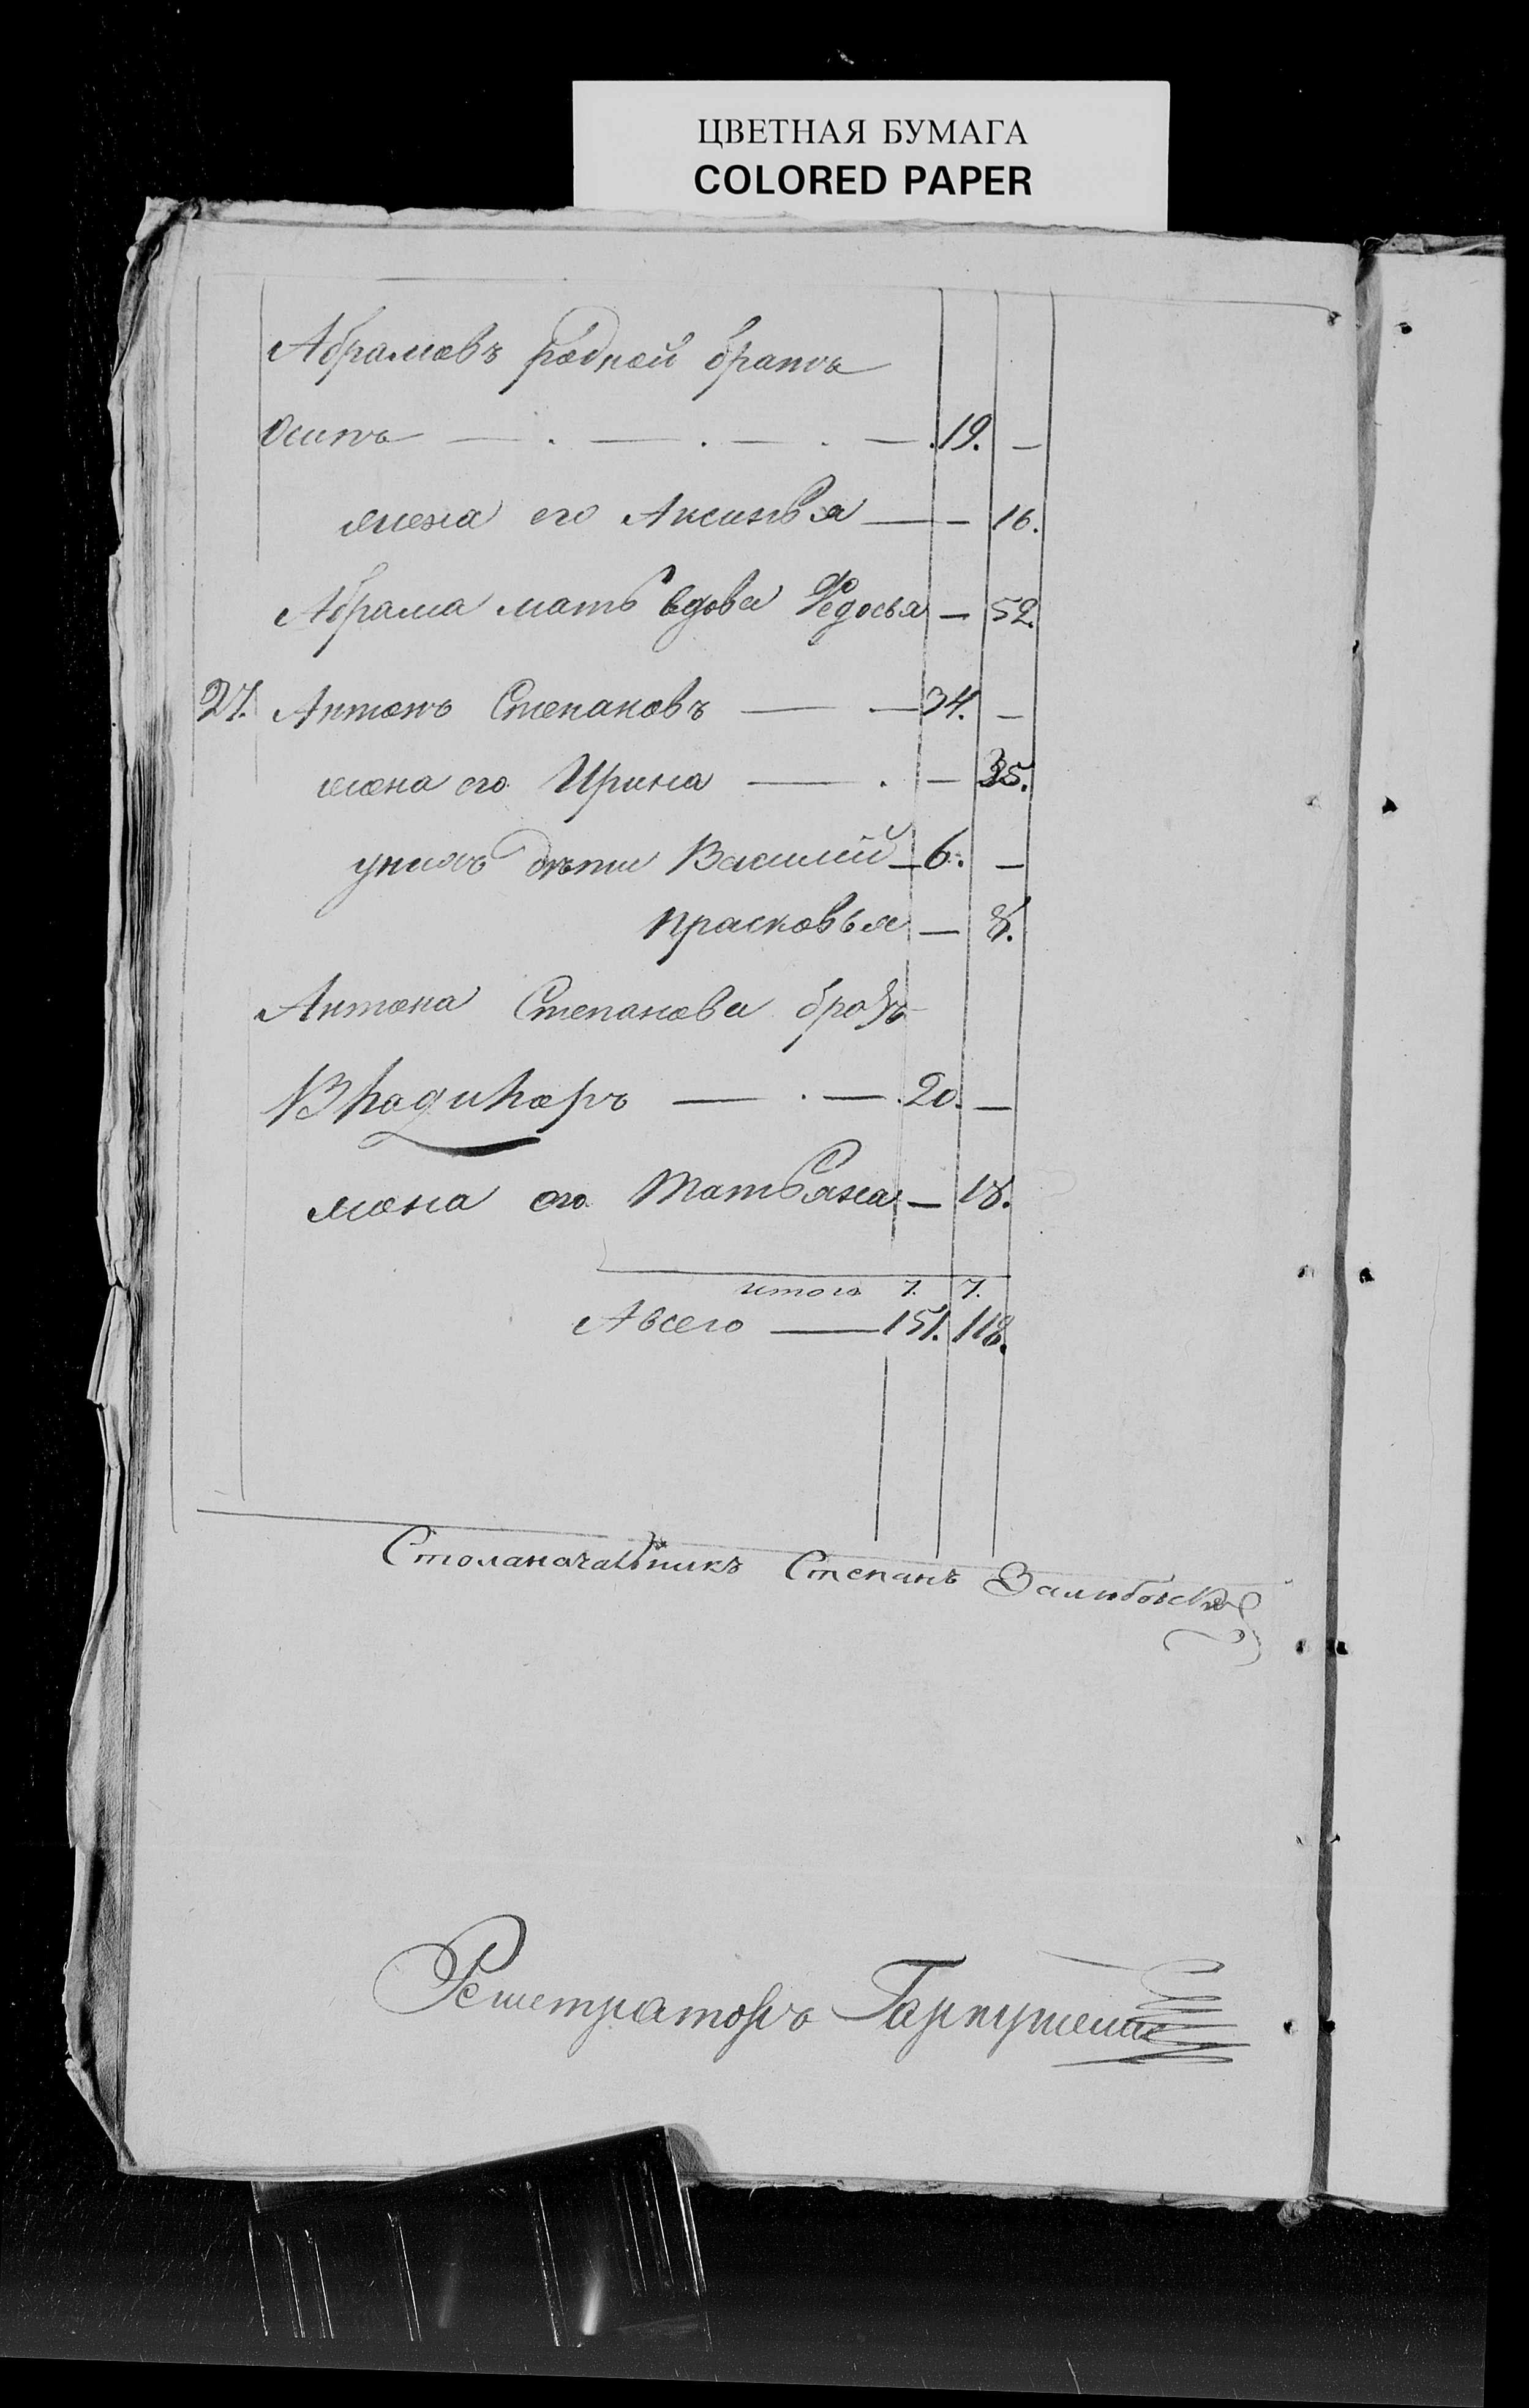 ЦВЕТНАЯ БУМАГА
COLORED PAPER
Абрамовъ родной братъ
Осипъ — . — . — . — . 19. —
жена его Аксинья — — 16.
Абрама мать вдова Федосья — 52.
27. Антонъ Степановъ — — 34. —
жена его Ирина — . — 35.
у нихъ дѣти Василий — 6. —
Прасковья — 8.
Антона Степанова братъ
Владимеръ — . — . 20. —
жена его Татьяна — 18.
итого 7. 7.
А всего — 151. 118.
Столаначальникъ Степанъ
Регистраторъ